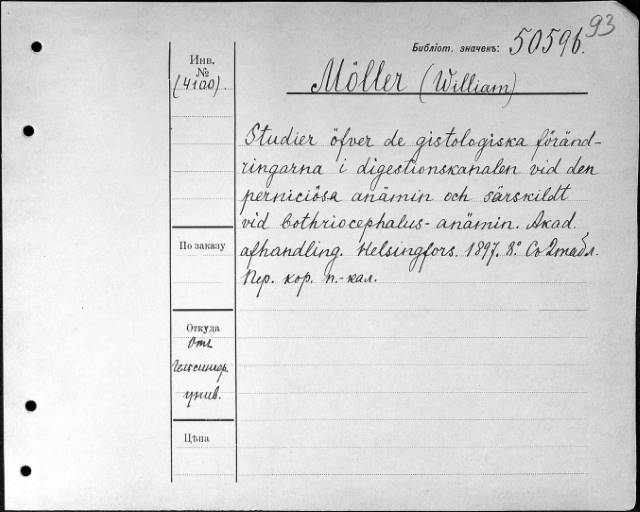 93
Библіот. значекъ: 50596.
Инв. №
(4100)
Möller (William)
Studier öfver de gistologiska föränd-
ringarna i digestionskanalen vid den
perniciösa anämin och särskildt
vid bothriocephalus-anämin. Akad.
afhandling. Helsingfors. 1897. 8° Со 2 табл.
Пер. кор. п.-кал.
По заказу
Откуда
Отъ
Гельсингф.
унив.
Цѣна